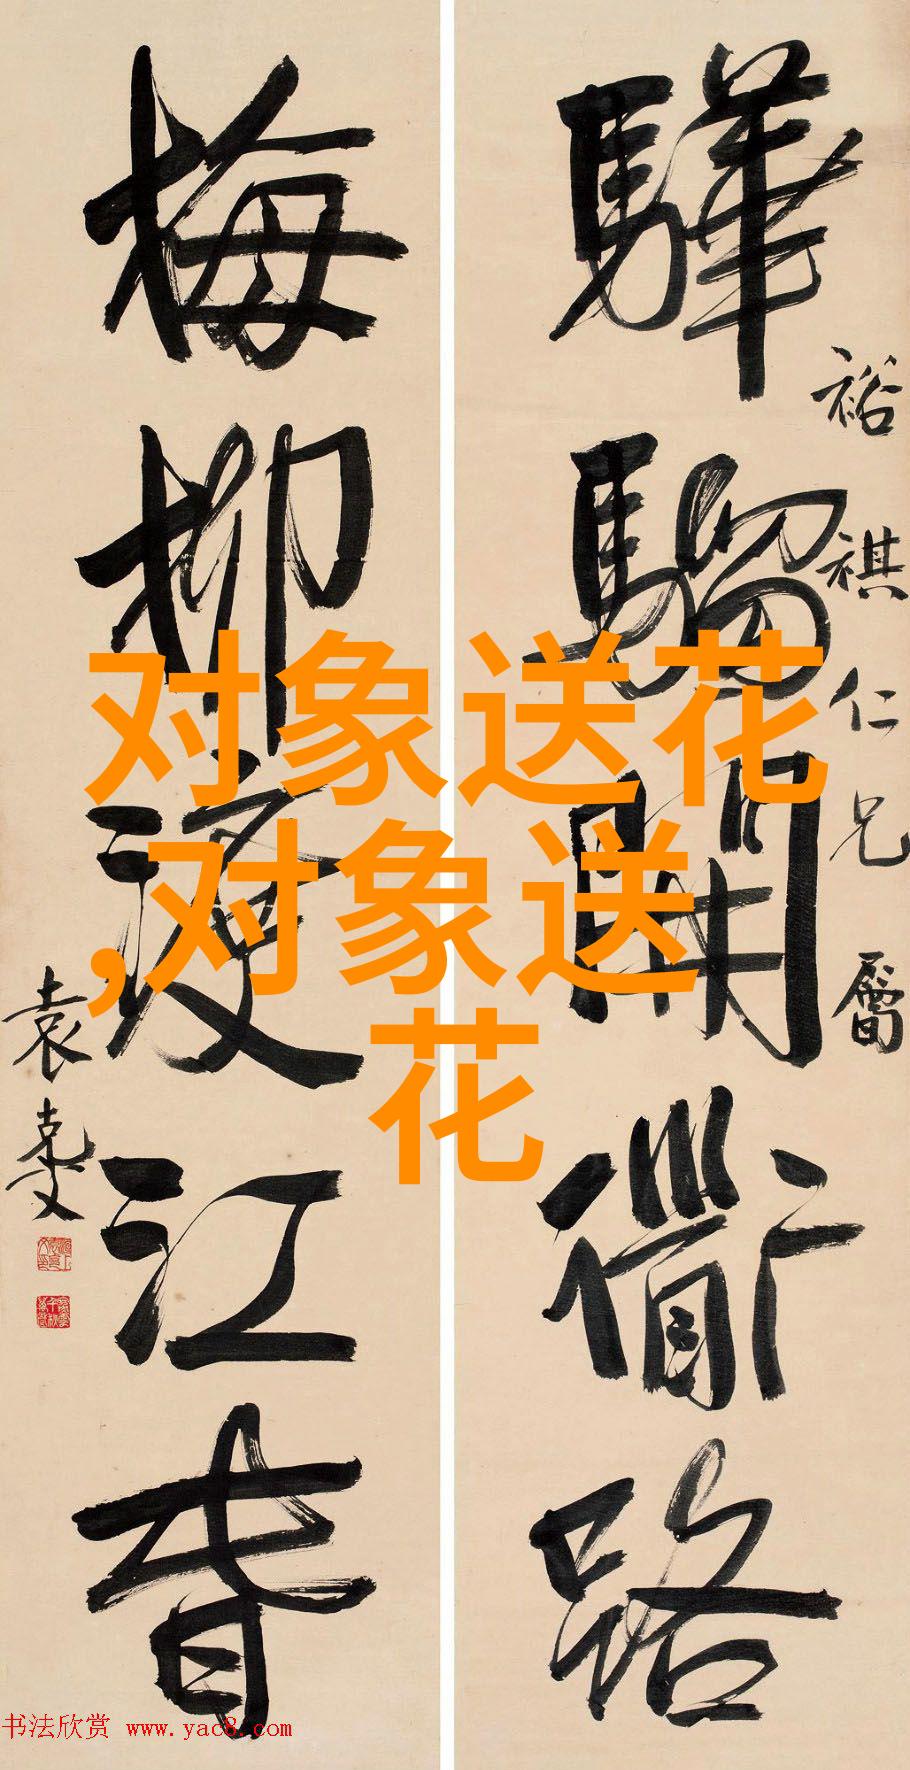 对象送花
,对象送
花
裕祺仁兄屬
驊騮開衜路
梅柳渡江春
袁克文
书法欣赏 www.yac8.com